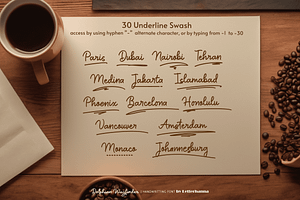 30 Underline Swash
access by using hyphen "-" alternate character, or by typing from -1 to -30
Paris Dubai Nairobi Tehran
Medina Jakarta Islamabad
Phoenix Barcelona Honolulu
Vancouver Amsterdam
Monaco Johannesburg
HANDWRITTING FONT By Letterhanna